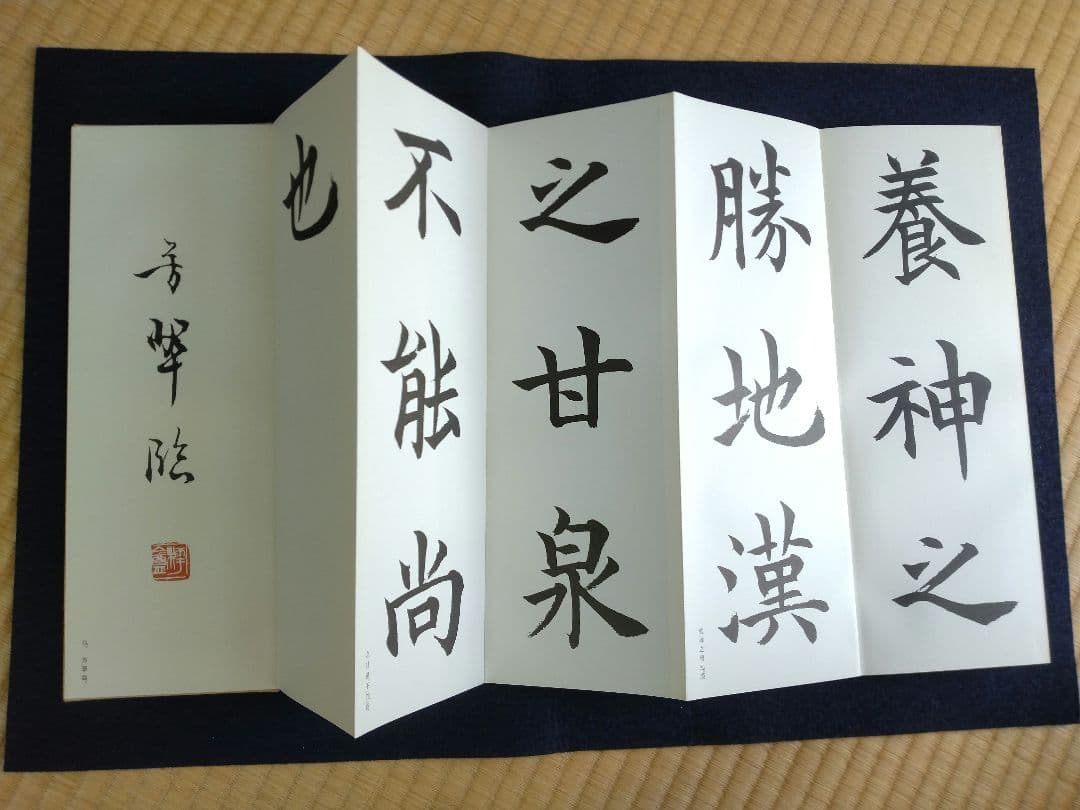 養神之
勝地漢
之甘泉
不能尚
也
芳翠臨